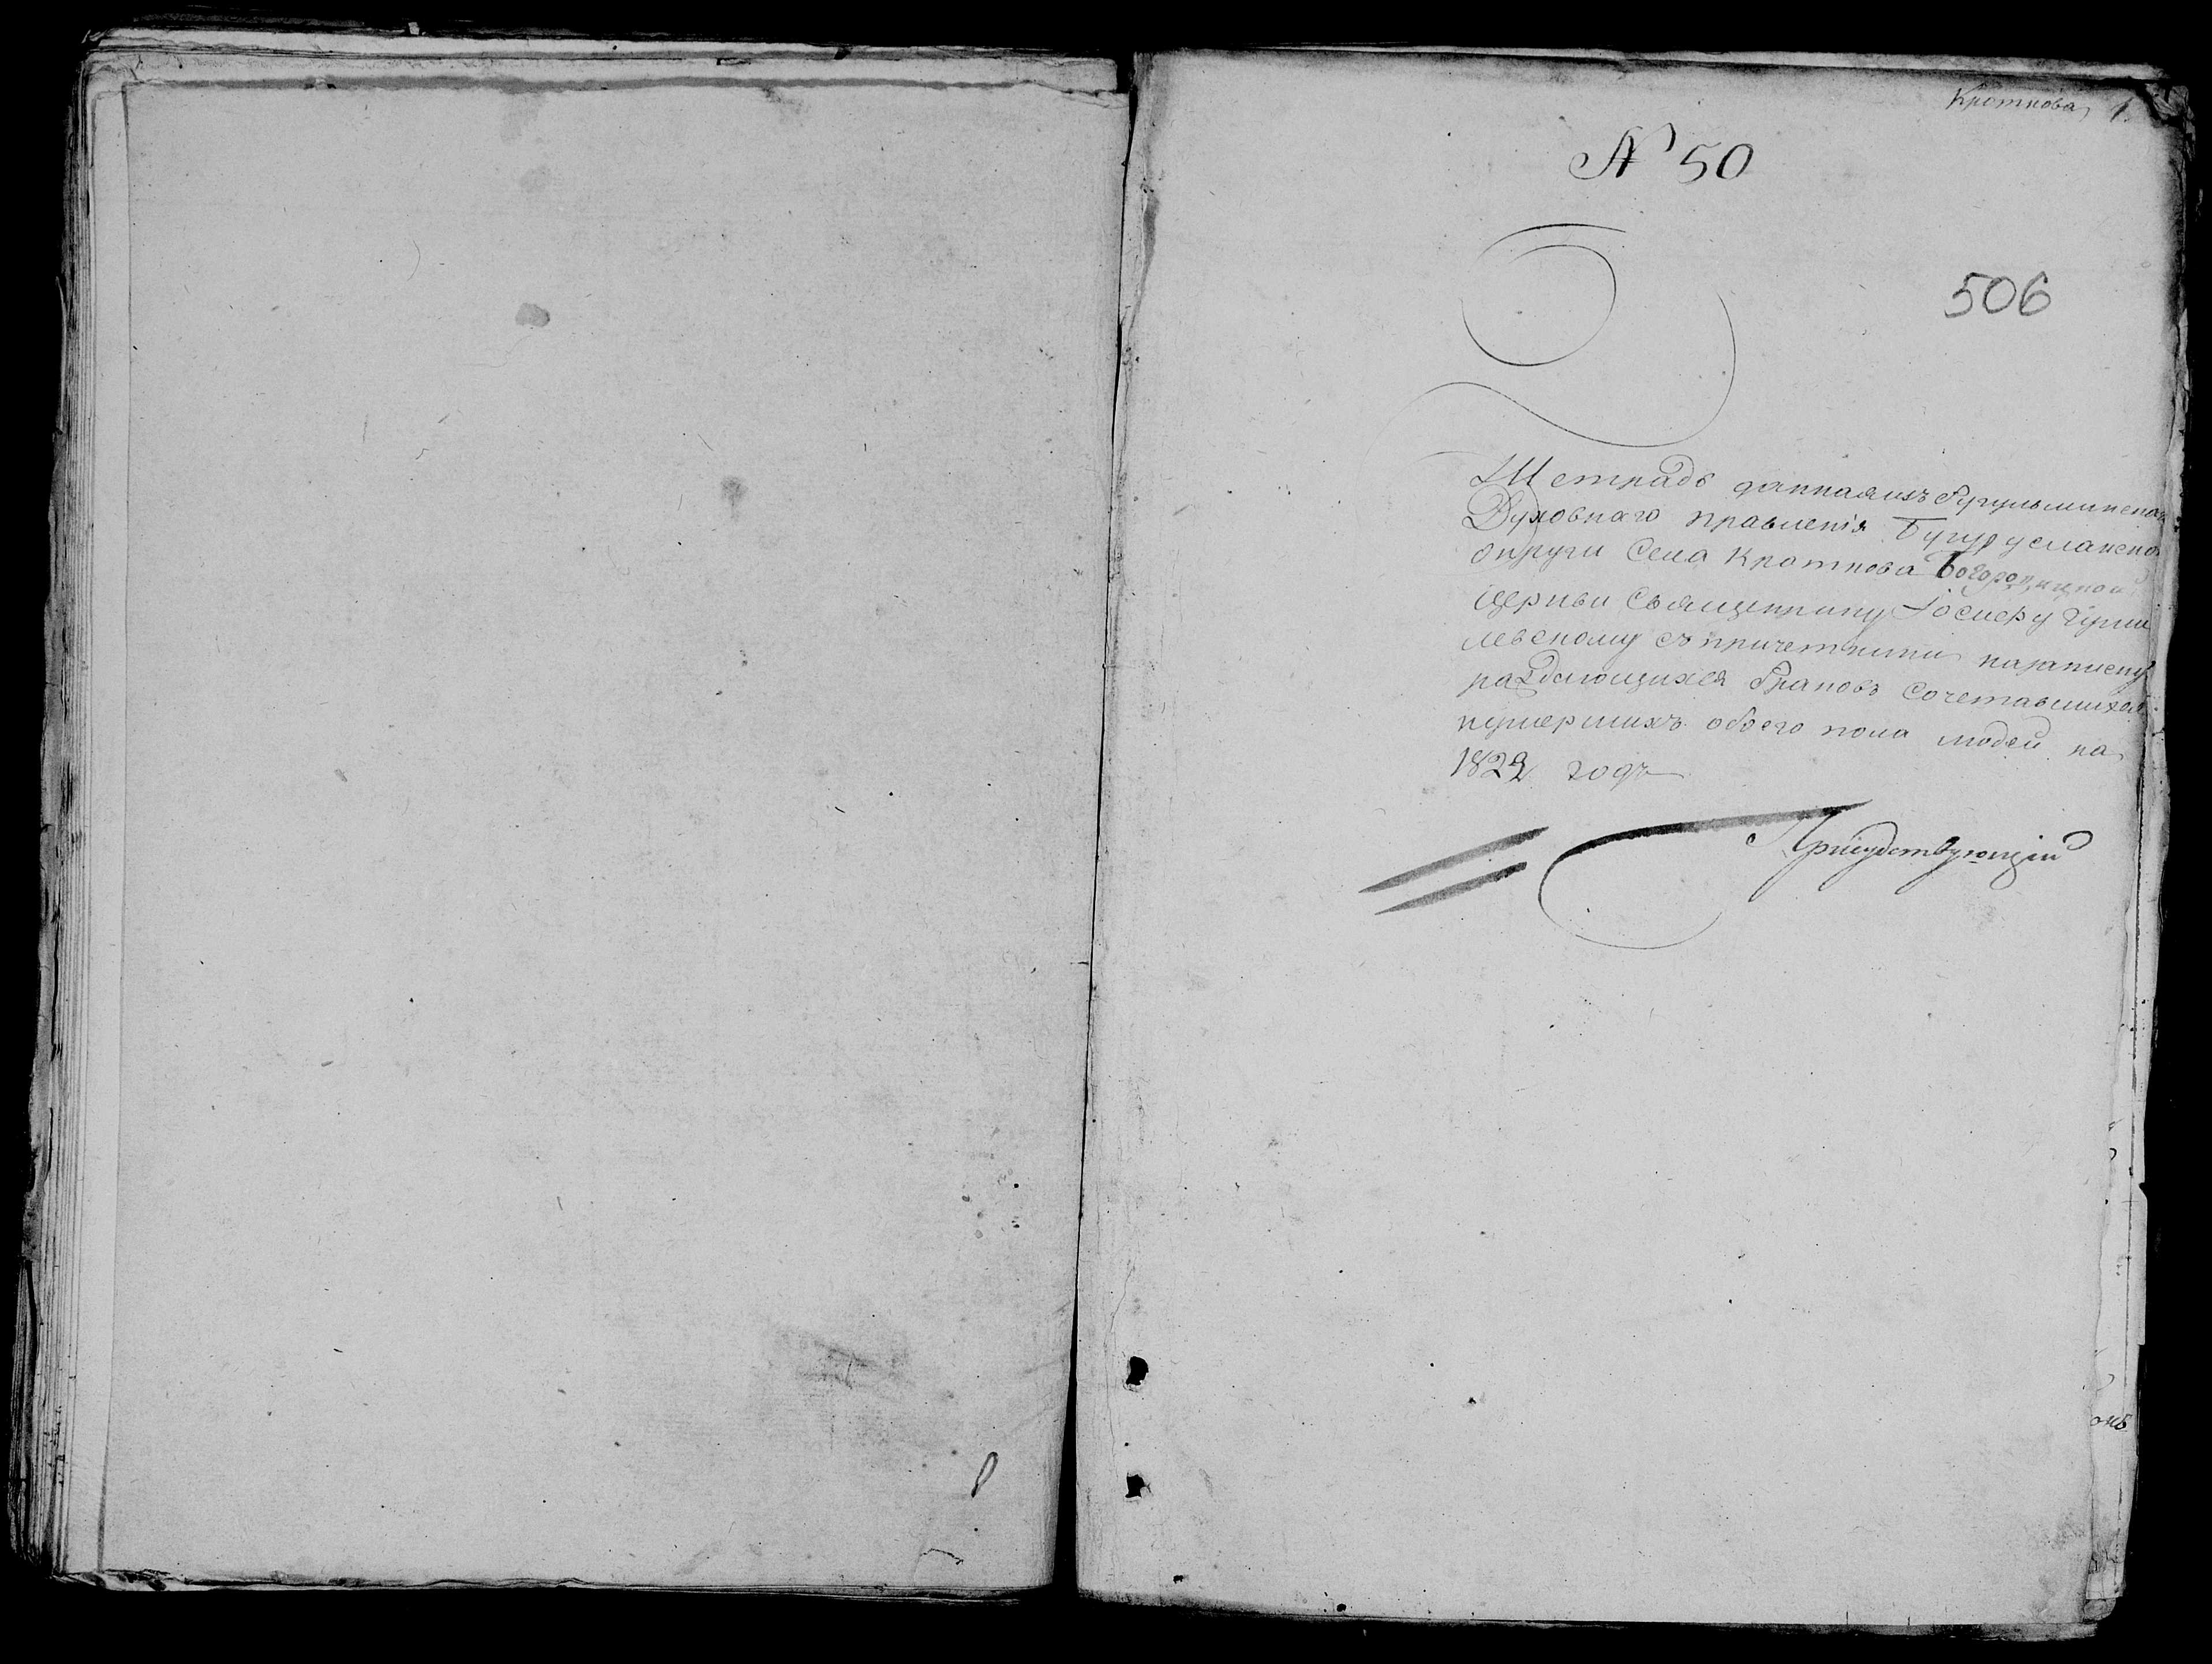 Кроткова 1.
№ 50
506
Тетрадь данная изъ Бугульминскаго
Духовнаго правленія Бугурусланской
округи Села Кроткова Богородицкой
Церкви Священнику Іосифу
съ причетники на записку
раждающихся браковъ Сочетавшихся
и умершихъ обоего пола людей на
1822 годъ
Присудствующій